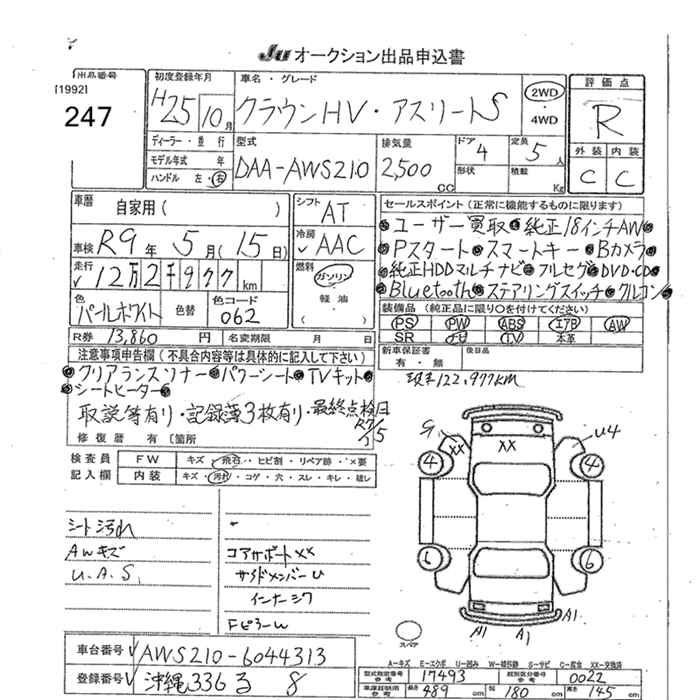 JU オークション出品申込書
出品番号
[1992]
247
初度登録年月
H25 10月
車名・グレード
クラウンHV・アスリートS
2WD
4WD
評価点
R
外装 内装
C C
ディーラー・並行
モデル年式 年
ハンドル 左・右
型式
DAA-AWS210
排気量
2,500 CC
ドア 4
形状
定員 5人
積載 Kg
車歴
自家用( )
シフト AT
車検 R9年5月(15日)
冷房 AAC
走行 12万2千977km
燃料 ガソリン
軽油
色 パールホワイト
色替
色コード 062
R券 13,860円
名変期限 月 日
セールスポイント(正常に機能するものに限ります)
●ユーザー買取●純正18インチAW●
●Pスタート●スマートキー●Bカメラ●
●純正HDDマルチナビ●フルセグ●DVD・CD●
●Bluetooth●ステアリングスイッチ●クルコン●
装備品(純正品に限り○を付けてください)
PS PW ABS エアB AW
SR ナビ TV 本革
新車保証書 後日品
有・無
注意事項申告欄(不具合内容等は具体的に記入して下さい)
●クリアランスソナー●パワーシート●TVキット●
●シートヒーター●
取説等有り・記録簿3枚有り・最終点検日
R7/5
修復歴 有〔箇所
現車122,977KM
検査員 FW キズ・飛石・ヒビ割・リペア跡・×要
記入欄 内装 キズ・汚れ・コゲ・穴・スレ・キレ・雄レ
シート汚れ
AWキズ
U.A.S.
コアサポートXX
サイドメンバーU
インナーシワ
FピラーW
G
XX
XX
U4
4
4
6
6
A1
A1
A1
スペア
A-キズ E-エクボ U-凹み W-補修跡 S-サビ C-腐食 XX-交換済
車台番号 AWS210-6044313
登録番号 沖縄 336 る 8
型式指定番号 17493
類別区分番号 0022
参考
長さ 489 cm
幅 180 cm
高さ 145 cm